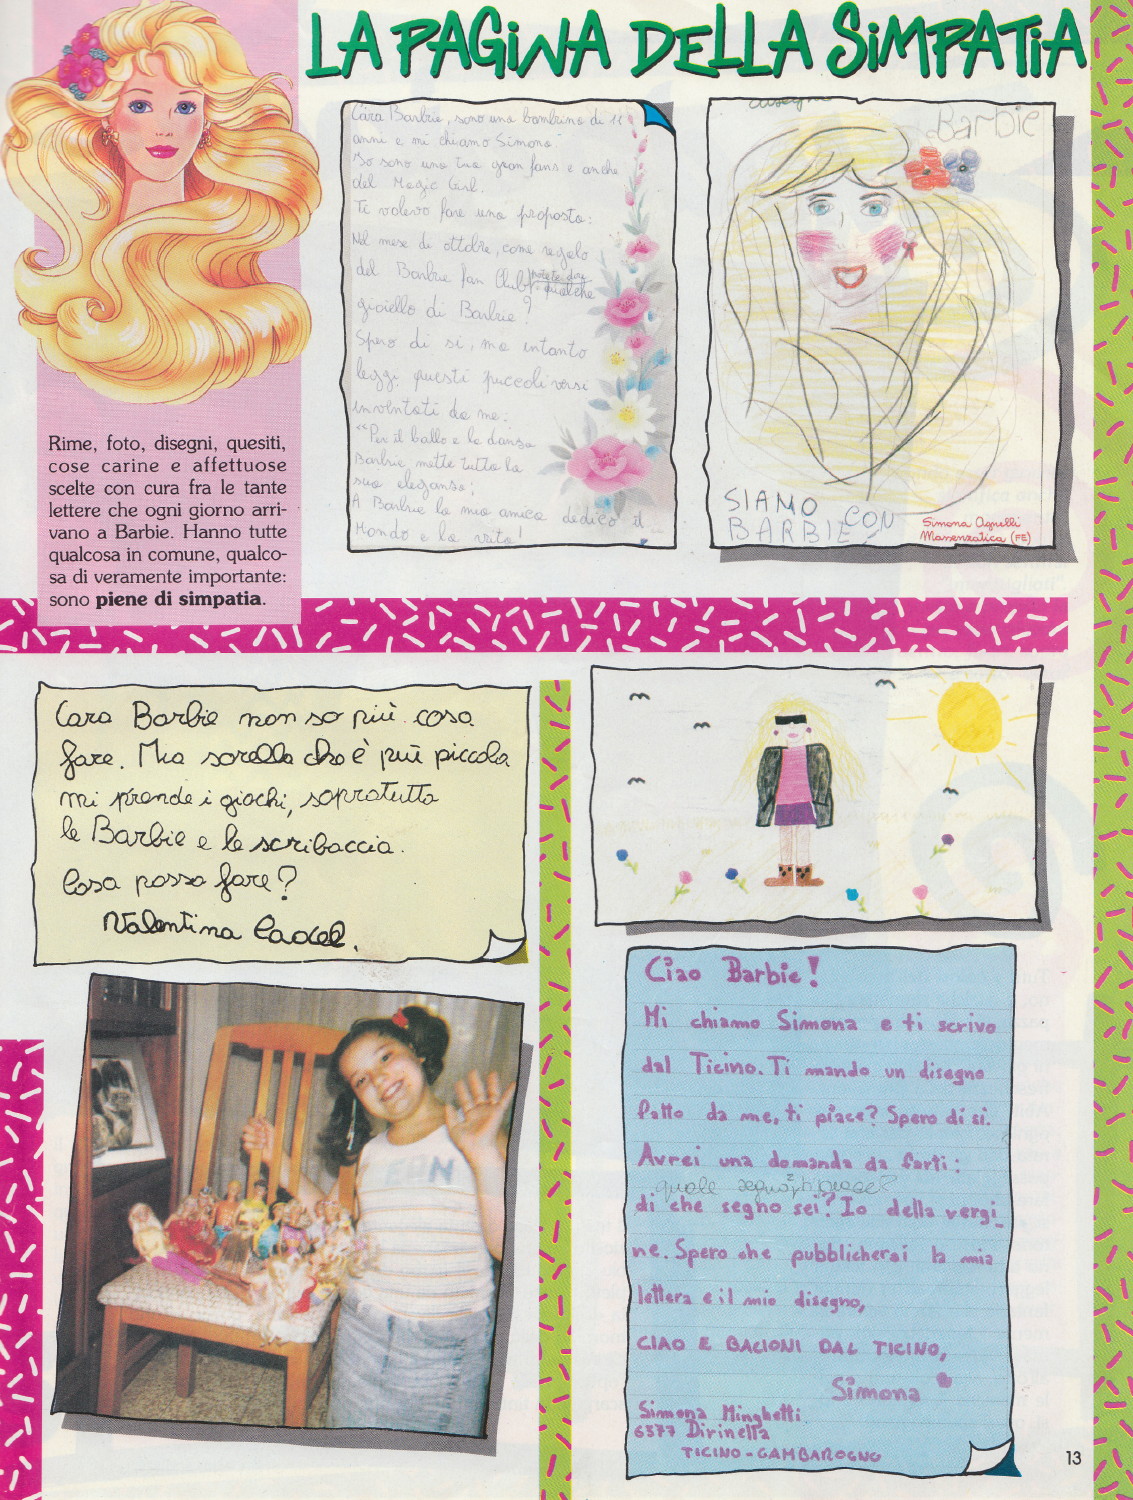 LA PAGINA DELLA SIMPATIA
Rime, foto, disegni, quesiti,
cose carine e affettuose
scelte con cura fra le tante
lettere che ogni giorno arri-
vano a Barbie. Hanno tutte
qualcosa in comune, qualco-
sa di veramente importante:
sono piene di simpatia.
Cara Barbie, sono una bambina di 11
anni e mi chiamo Simona.
Io sono una tua gran fans e anche
del Magic Girl.
Ti volevo fare una proposta:
Nel mese di ottobre, come regalo
del Barbie fan Club potete dare
qualche
gioiello di Barbie?
Spero di si, ma intanto
leggi questi piccoli versi
inventati da me:
"Per il ballo e la danza
Barbie mette tutta la
sua eleganza;
A Barbie la mia amica dedico il
Mondo e la vita!
disegno
Barbie
SIAMO CON
BARBIE
Simona Agnelli
Massenzatica (FE)
Cara Barbie non so più cosa
fare. Mia sorella che è più piccola
mi prende i giochi, sopratutto
le Barbie e le scribaccia.
Cosa posso fare?
Valentina
Ciao Barbie!
Mi chiamo Simona e ti scrivo
dal Ticino. Ti mando un disegno
fatto da me, ti piace? Spero di si.
Avrei una domanda da farti:
quale segno
di che segno sei? Io della vergi_
ne. Spero che pubblicherai la mia
lettera e il mio disegno,
CIAO E BACIONI DAL TICINO,
Simona
Simona Minghetti
6577 Dirinella
TICINO-GAMBAROGNO
13